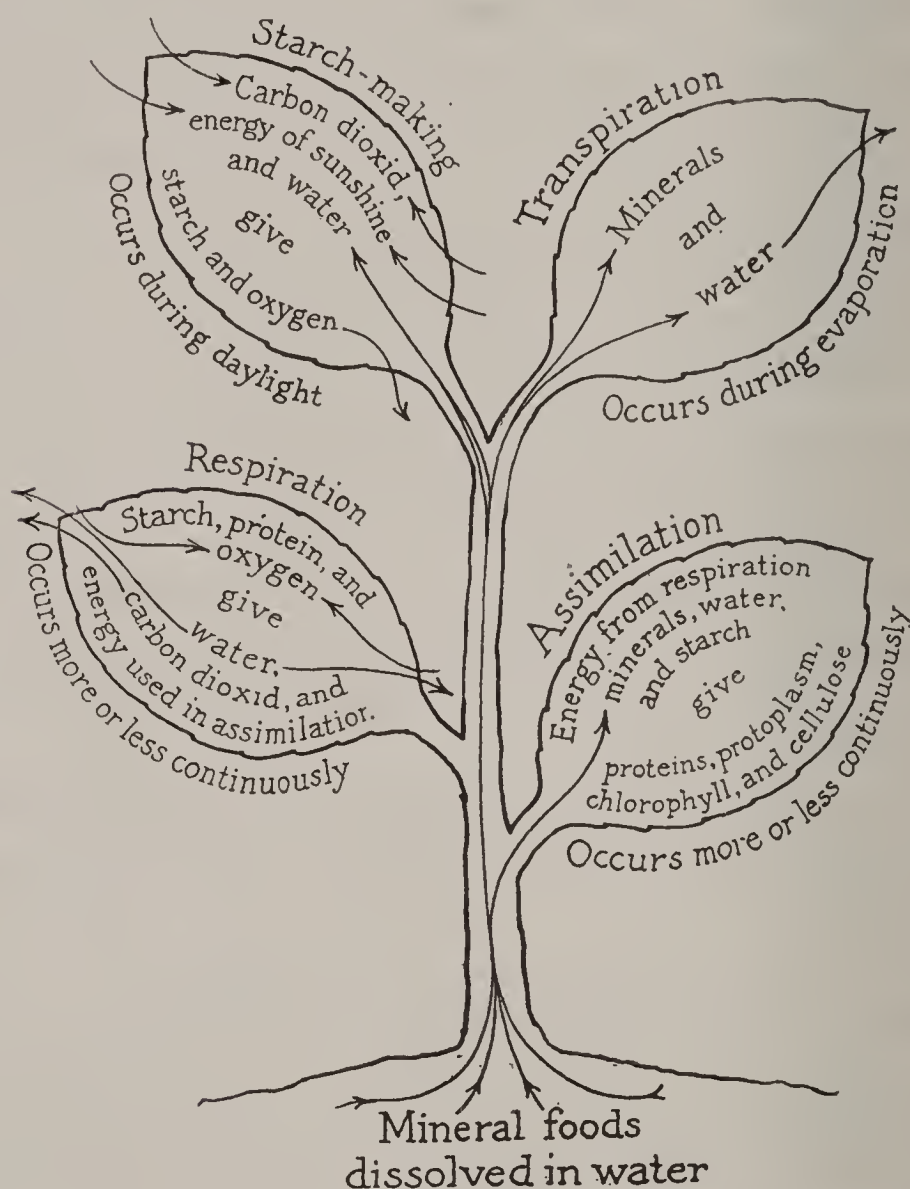 Starch-making
Carbon dioxid,
energy of sunshine
and water
give
starch and oxygen
Occurs during daylight
Transpiration
Minerals
and
water
Occurs during evaporation
Respiration
Starch, protein, and
oxygen
give
water,
carbon dioxid, and
energy used in assimilation.
Occurs more or less continuously
Assimilation
Energy from respiration
minerals, water,
and starch
give
proteins, protoplasm,
chlorophyll, and cellulose
Occurs more or less continuously
Mineral foods
dissolved in water